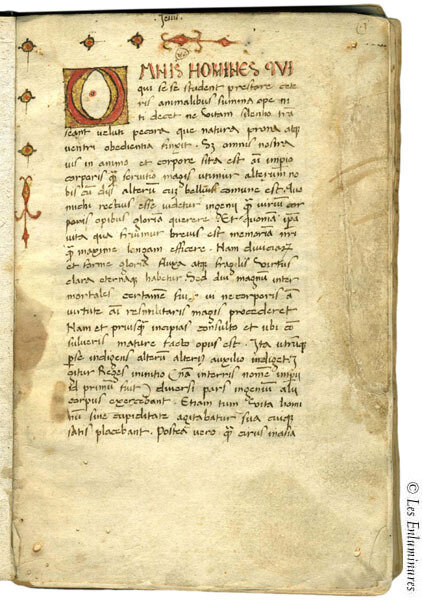 Jesus
OMNIS HOMINES QVI
qui se se student prestare cete
ris animalibus summa ope ni
ti decet ne vitam silentio tra
seant veluti pecora que natura prona atqȝ
ventri obedientia finxit . Sȝ omnis nostra
vis in animo et corpore sita est aĩ impio
corporis ꝙ servitio magis utimur alterum no
bis cũ dijs alterũ cuȝ belluis comune est . Quo
michi rectius esse videtur ingenij ꝙ viriũ cor
poris opibus gloriã querere . Et quoniaȝ ipã
vita qua fruimur brevis est memoriã nrĩ
ꝙ maxime longam efficere . Nam diviciarȝ
et forme gloria fluxa atqȝ fragilis virtus
clara eternaqȝ habetur Sed diu magnũ inter
mortales certamen fuit vi ne corporis ã
virtute aĩ res militaris magis procederet
Nam et priusqȝ incipias consulto et ubi co
sulveris mature facto opus est . Ita utrũqȝ
per se indigens alterũ alteriȝ auxilio indiget . I
gitur Reges initio (nã in terris nomẽ impij
id primũ fuit) diversi pars ingeniũ alij
corpus exercebant . Etiam tum vita homi
nũ sine cupiditate agitabatur sua cuiqȝ
satis placebant . Postea vero ꝙ cirus in asia
© Les Enluminures